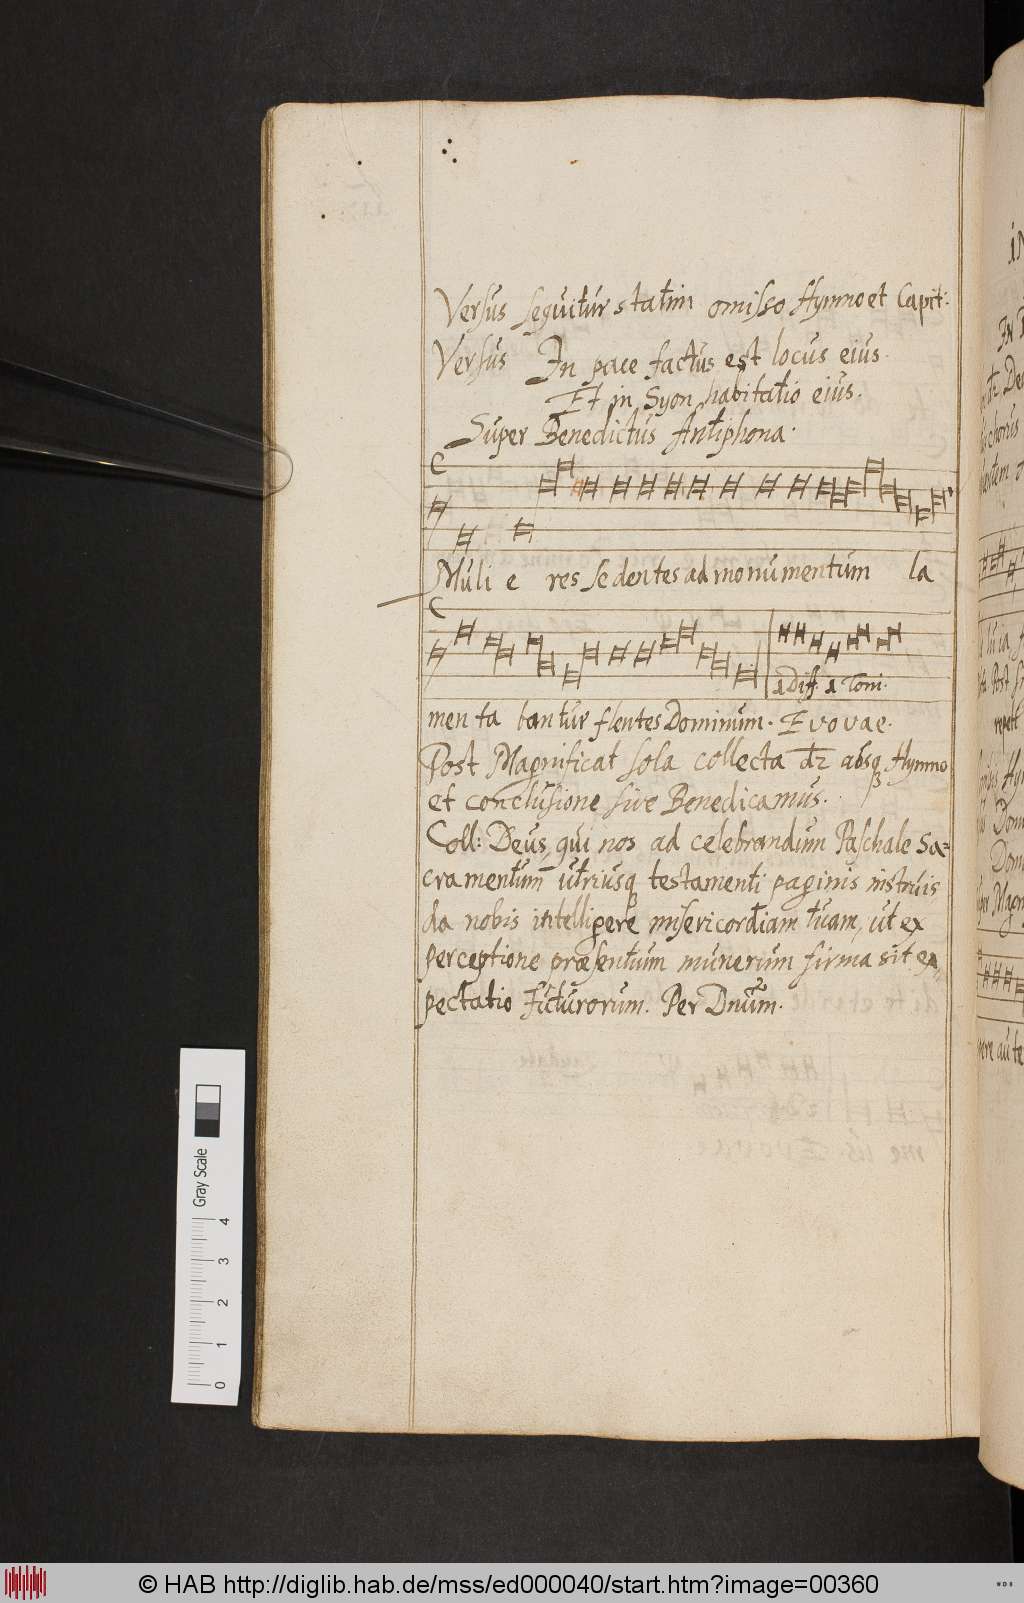 Versus sequitur statim omisso Hymno et Capit:
Versus In pace factus est locus eius.
Et in Syon habitatio eius.
Super Benedictus Antiphona.
C
Muli e res se dentes ad monumentum la
C
1 Diff. 1 Toni.
men ta bantur flentes Dominum. Evovae.
Post Magnificat sola collecta dr absq Hymno
et conclusione sive Benedicamus.
Coll: Deus, qui nos ad celebrandum Paschale Sa=
cramentum utriusq testamenti paginis instruis,
da nobis intelligere misericordiam tuam, ut ex
perceptione præsentium munerum firma sit ex,
pectatio Futurorum. Per Dnūm.
Gray Scale
0 1 2 3 4
© HAB http://diglib.hab.de/mss/ed000040/start.htm?image=00360